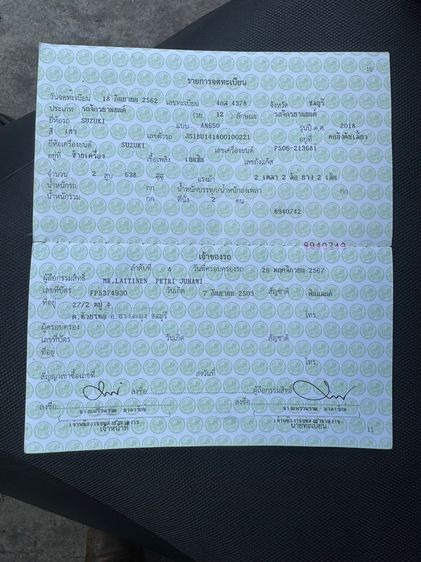 10
รายการจดทะเบียน
วันจดทะเบียน 18 กันยายน 2562 เลขทะเบียน 4378 จังหวัด ชลบุรี
ประเภท รถจักรยานยนต์ (รย. 12 ) ลักษณะ รถจักรยานยนต์
ยี่ห้อรถ SUZUKI แบบ AN650 รุ่นปี ค.ศ. 2018
สี เทา เลขตัวรถ JS1BU141800100221 อยู่ที่ คอยึดคันเลี้ยว
ยี่ห้อเครื่องยนต์ SUZUKI เลขเครื่องยนต์ P506-213681
อยู่ที่ ข้างเครื่อง เชื้อเพลิง เบนซิน เลขถังแก๊ส
จำนวน 2 สูบ 638 ซีซี แรงม้า 2 เพลา 2 ล้อ ยาง 2 เส้น
น้ำหนักรถ กก. น้ำหนักบรรทุก/น้ำหนักลงเพลา กก.
น้ำหนักรวม กก. ที่นั่ง 2 คน
8940742
8940742
เจ้าของรถ
ลำดับที่ 4 วันที่ครอบครองรถ 26 พฤศจิกายน 2567
ผู้ถือกรรมสิทธิ์ MR.LAITINEN PETRI JUHANI
เลขที่บัตร FP5374930 วันเกิด 7 กันยายน 2503 สัญชาติ ฟินแลนด์
ที่อยู่ 27/2 หมู่ 4
ต.ห้วยใหญ่ อ.บางละมุง ชลบุรี โทร.
ผู้ครอบครอง
เลขที่บัตร วันเกิด สัญชาติ
ที่อยู่
โทร.
สัญญาเช่าซื้อเลขที่ ลงวันที่
ลงชื่อ ผู้ถือกรรมสิทธิ์
ลงชื่อ ลงชื่อ
เจ้าหน้าที่ นายทะเบียน
11